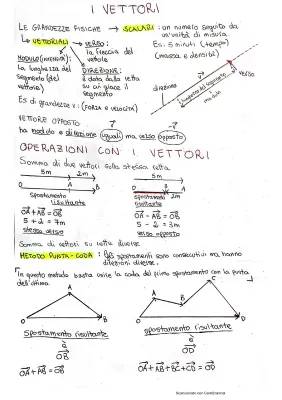 I VETTORI
LE GRANDEZZE FISICHE → SCALARI: un numero seguito da
un'unità di misura
Es: 5 minuti (tempo)
(massa e densità)
VETTORIALI → VERSO:
la freccia del
vettore
MODULO (INTENSITÀ):
la lunghezza del
segmento (del
vettore)
DIREZIONE:
è data dalla retta
su cui giace il
segmento
direzione
verso
v
lunghezza del segmento
modulo
Es di grandezze v.: (FORZA e VELOCITÀ)
VETTORE OPPOSTO
ha modulo e direzione uguali ma verso opposto
OPERAZIONI CON I VETTORI
Somma di due vettori sulla stessa retta
5m 2m
O A B
spostamento
risultante
OA + AB = OB
5 + 2 = 7m
stesso verso
5m
O B A
spostamento 2m
risultante
OA - AB = OB
5 - 2 = 3m
verso opposto
Somma di vettori su rette diverse
METODO PUNTA-CODA: gli spostamenti sono consecutivi ma hanno
direzioni diverse.
In questo metodo basta unire la coda del primo spostamento con la punta
dell'ultima
A
O B
Spostamento risultante
è
OB
OA + AB = OB
C
A
B
O D
spostamento risultante
è
OD
OA + AB + BC + CD = OD
Scansionato con CamScanner